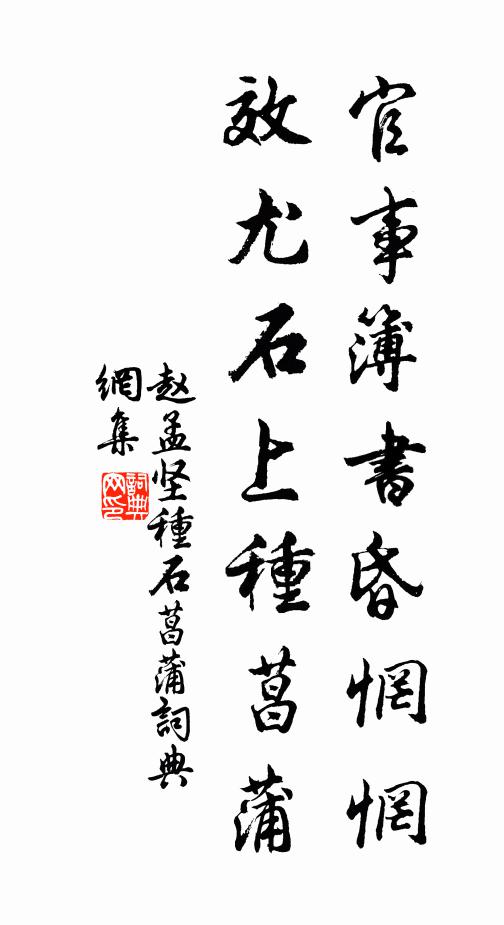 官事簿書昏惘惘
效尤石上種菖蒲
赵孟坚種石菖蒲詞典
網集
詞典
网印